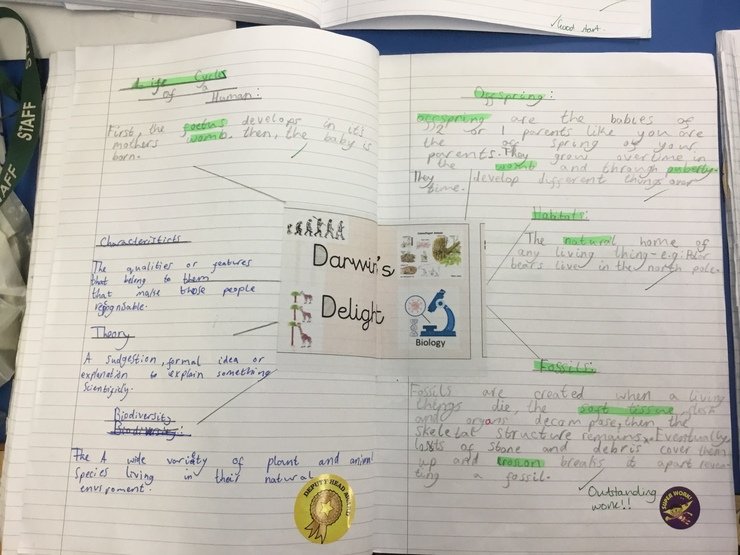 Good start.
STAFF
Life Cycles
of a Human:
First, the foetus develops in it's
mothers womb. then, the baby is
born.
Characteristicts
The qualities or features
that belong to them
that make those people
regognisable.
Theory
A sudgestion, formal idea or
explanation to explain something
Scientifisly.
Biodiversity
Biodiversity:
The A wide variety of plant and animal
species living in their natural
enviroment.
DEPUTY HEAD AWARD
Darwin's
Delight
Biology
Offspring:
offspring are the babies of
2 or 1 parents like you are
the of spring of your
parents. They grow overtime in
the womb and through puberty.
They develop different things over
time.
Habitats:
The natural home of
any living thing - e.g. Polar
bears live in the north pole.
Fossils:
Fossils are created when a living
things die, the soft tissue, flesh
and organs decompose, then the
skeletal structure remains. Eventually
losts of stone and debris cover them
up and erosion breaks it apart revea-
ting a fossil.
Outstanding
work!!
SUPER WORK!